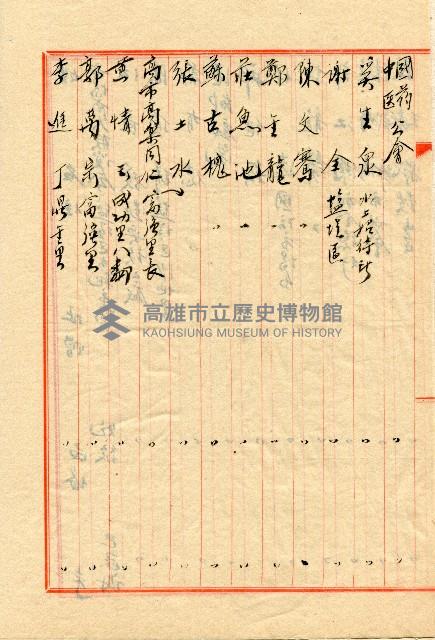 中國药
医公會
吳生泉 水上招待所 〃 〃
谢全 塩埕區 〃 〃
陳文騫 〃 〃 〃
鄭金龍 〃 〃 〃
莊魚池 〃 〃 〃
蘇古槐 〃 〃 〃
張土水 〃 〃
高市商業同仁 富強里長 〃 〃
黄情 成功里八鄰 〃 〃
郭萬 富強里 〃 〃
李進丁 里 〃 〃
高雄市立歷史博物館
KAOHSIUNG MUSEUM OF HISTORY